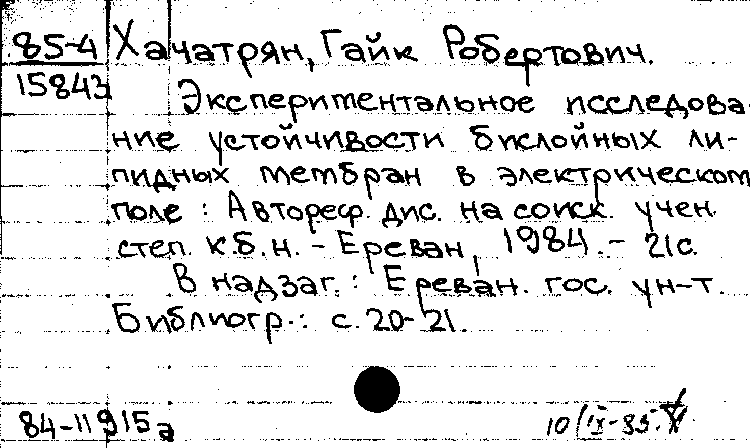 85-4 Хачатрян, Гайк Робертович.
15843
Экспериментальное исследова-
ние устойчивости бислойных ли-
пидных мембран в электрическом
поле : Автореф. дис. на соиск. учен.
степ. к.б.н. - Ереван, 1984. - 21 с.
В надзаг.: Ереван. гос. ун-т.
Библиогр.: с. 20-21.
84-11915а 10/IX-85.